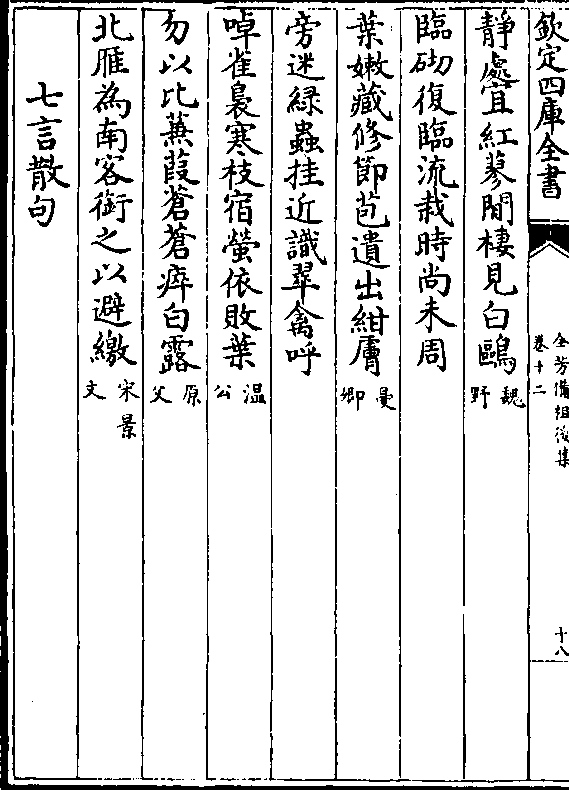 欽定四庫全書
全芳備祖後集
卷十二
十八
靜處宜紅蓼閒棲見白鷗魏野
臨砌復臨流栽時尚未周
葉嫩藏修節苞遺出紺膚曼卿
旁迷緑蟲挂近識翠禽呼
啅雀裊寒枝宿螢依敗葉温公
勿以比蒹葭蒼蒼瘁白露原父
北雁為南客銜之以避繳宋景文
七言散句